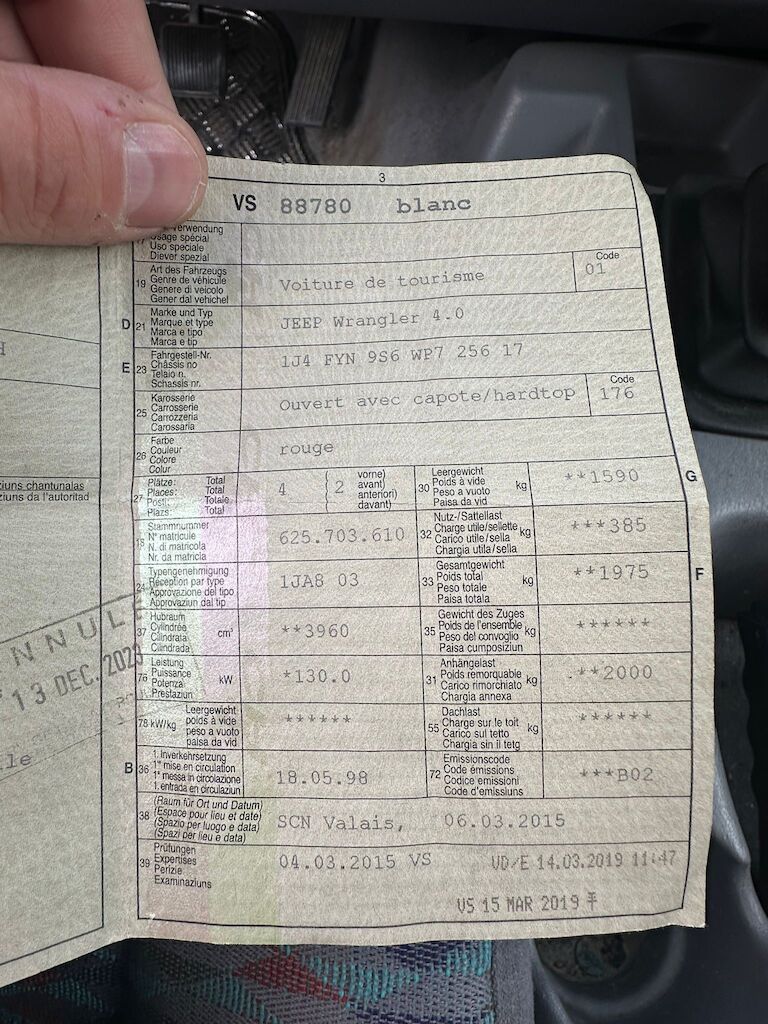 3
VS 88780 blanc
Verwendung
Usage spécial
Uso speciale
Diever spezial
19 Art des Fahrzeugs
Genre de véhicule
Genere di veicolo
Gener dal vehichel
Voiture de tourisme
Code
01
D 21 Marke und Typ
Marque et type
Marca e tipo
Marca e tip
JEEP Wrangler 4.0
E 23 Fahrgestell-Nr.
Châssis no
Telaio n.
Schassis nr.
1J4 FYN 9S6 WP7 256 17
25 Karosserie
Carrosserie
Carrozzeria
Carossaria
Ouvert avec capote/hardtop
Code
176
26 Farbe
Couleur
Colore
Colur
rouge
27 Plätze: Total
Places: Total
Posti: Totale
Plazs: Total
4 { 2 vorne)
avant)
anteriori)
davant)
30 Leergewicht
Poids à vide
Peso a vuoto
Paisa da vid
kg
**1590
G
18 Stammnummer
N° matricule
N. di matricola
Nr. da matricla
625.703.610
32 Nutz-/Sattellast
Charge utile/sellette
Carico utile/sella
Chargia utila/sella
kg
***385
24 Typengenehmigung
Réception par type
Approvazione del tipo
Approvaziun dal tip
1JA8 03
33 Gesamtgewicht
Poids total
Peso totale
Paisa totala
kg
**1975
F
37 Hubraum
Cylindrée
Cilindrata
Cilindrada
cm³
**3960
35 Gewicht des Zuges
Poids de l'ensemble
Peso del convoglio
Paisa cumposiziun
kg
******
76 Leistung
Puissance
Potenza
Prestaziun
kW
*130.0
31 Anhängelast
Poids remorquable
Carico rimorchiato
Chargia annexa
kg
.**2000
78 kW/kg Leergewicht
poids à vide
peso a vuoto
paisa da vid
******
55 Dachlast
Charge sur le toit
Carico sul tetto
Chargia sin il tetg
kg
******
B 36 1. Inverkehrsetzung
1re mise en circulation
1a messa in circolazione
1. entrada en circulaziun
18.05.98
72 Emissionscode
Code émissions
Codice emissioni
Code d'emissiuns
***B02
38 (Raum für Ort und Datum)
(Espace pour lieu et date)
(Spazio per luogo e data)
(Spazi per lieu e data)
SCN Valais, 06.03.2015
39 Prüfungen
Expertises
Perizie
Examinaziuns
04.03.2015 VS VD/E 14.03.2019 11:47
VS 15 MAR 2019
ziuns chantunalas
ziuns da l'autoritad
ANNULE
13 DEC. 2023
le